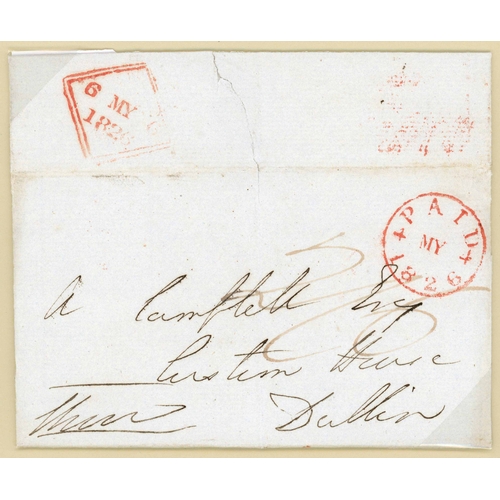 6 MY
1826
+ PAID +
MY
1826
A Campbell Esq
Custom House
Dublin